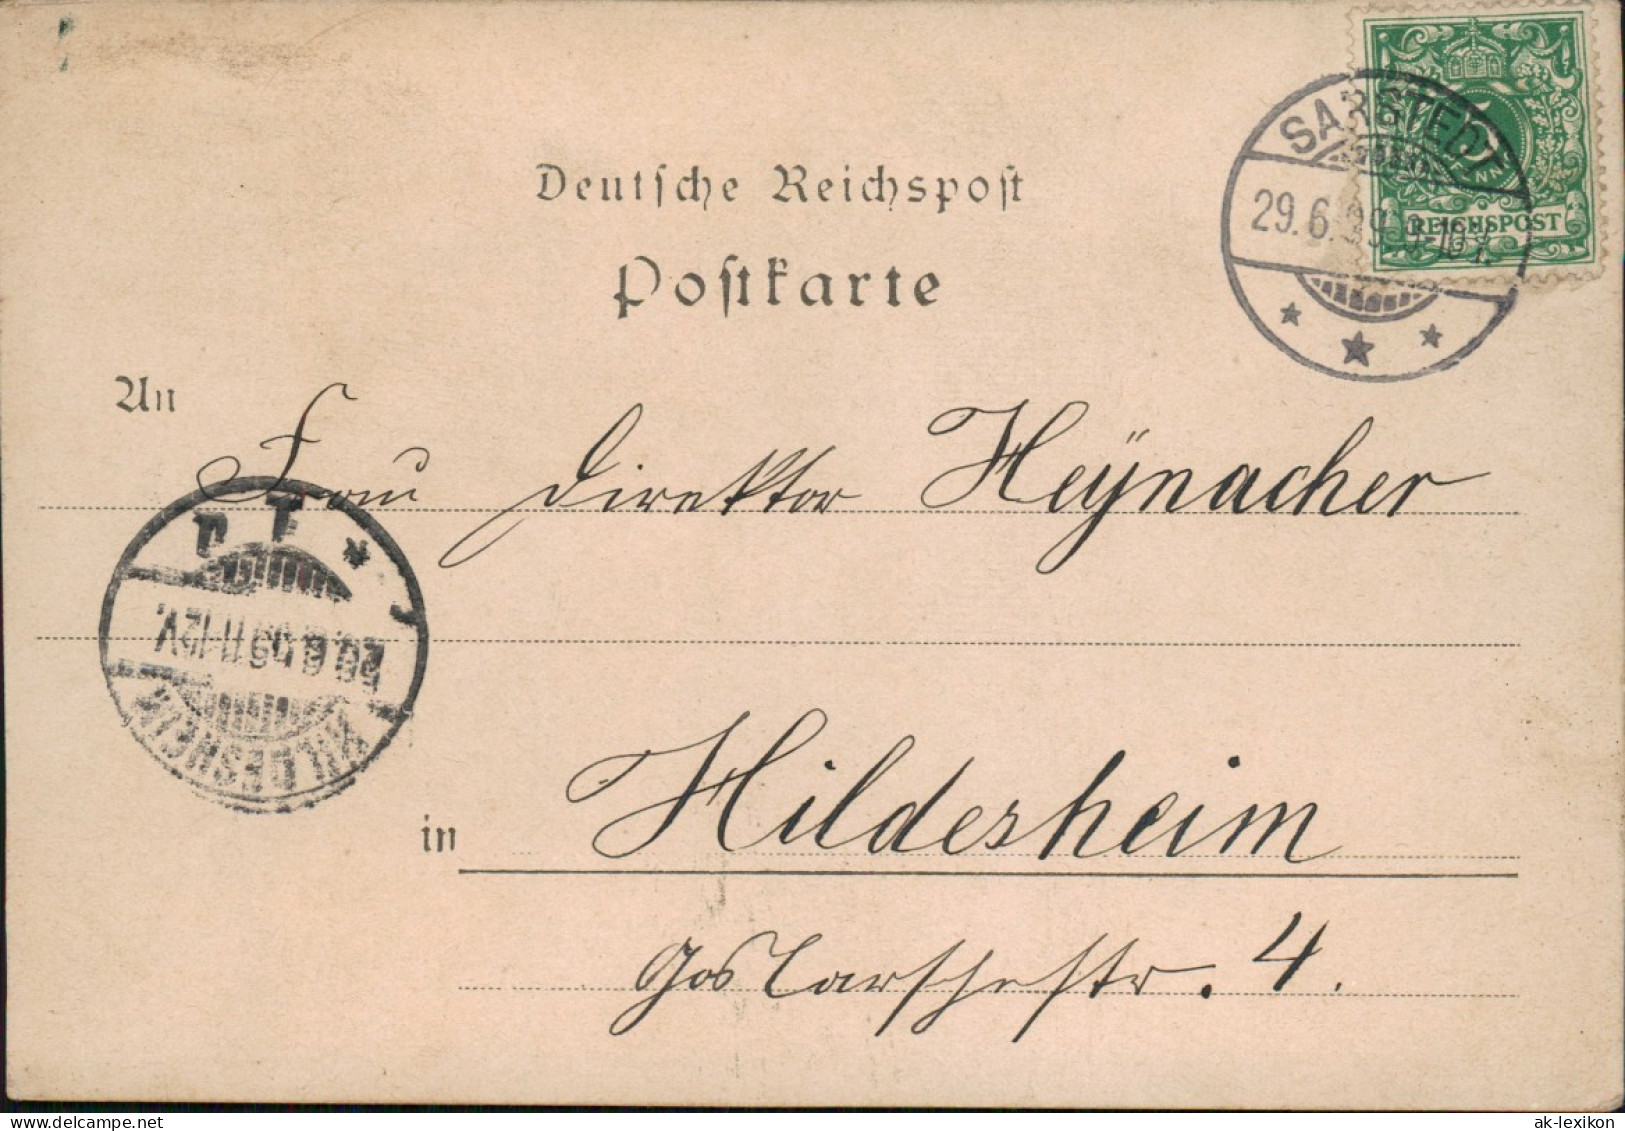 Deutsche Reichspost
Postkarte
SARSTEDT
29.6.99. 9-10V.
5
REICHSPOST
An
Frau Direktor Heÿnacher
HILDESHEIM
29.6.99 11-12V.
in
Hildesheim
Goslarschestr. 4.
ak-lexikon